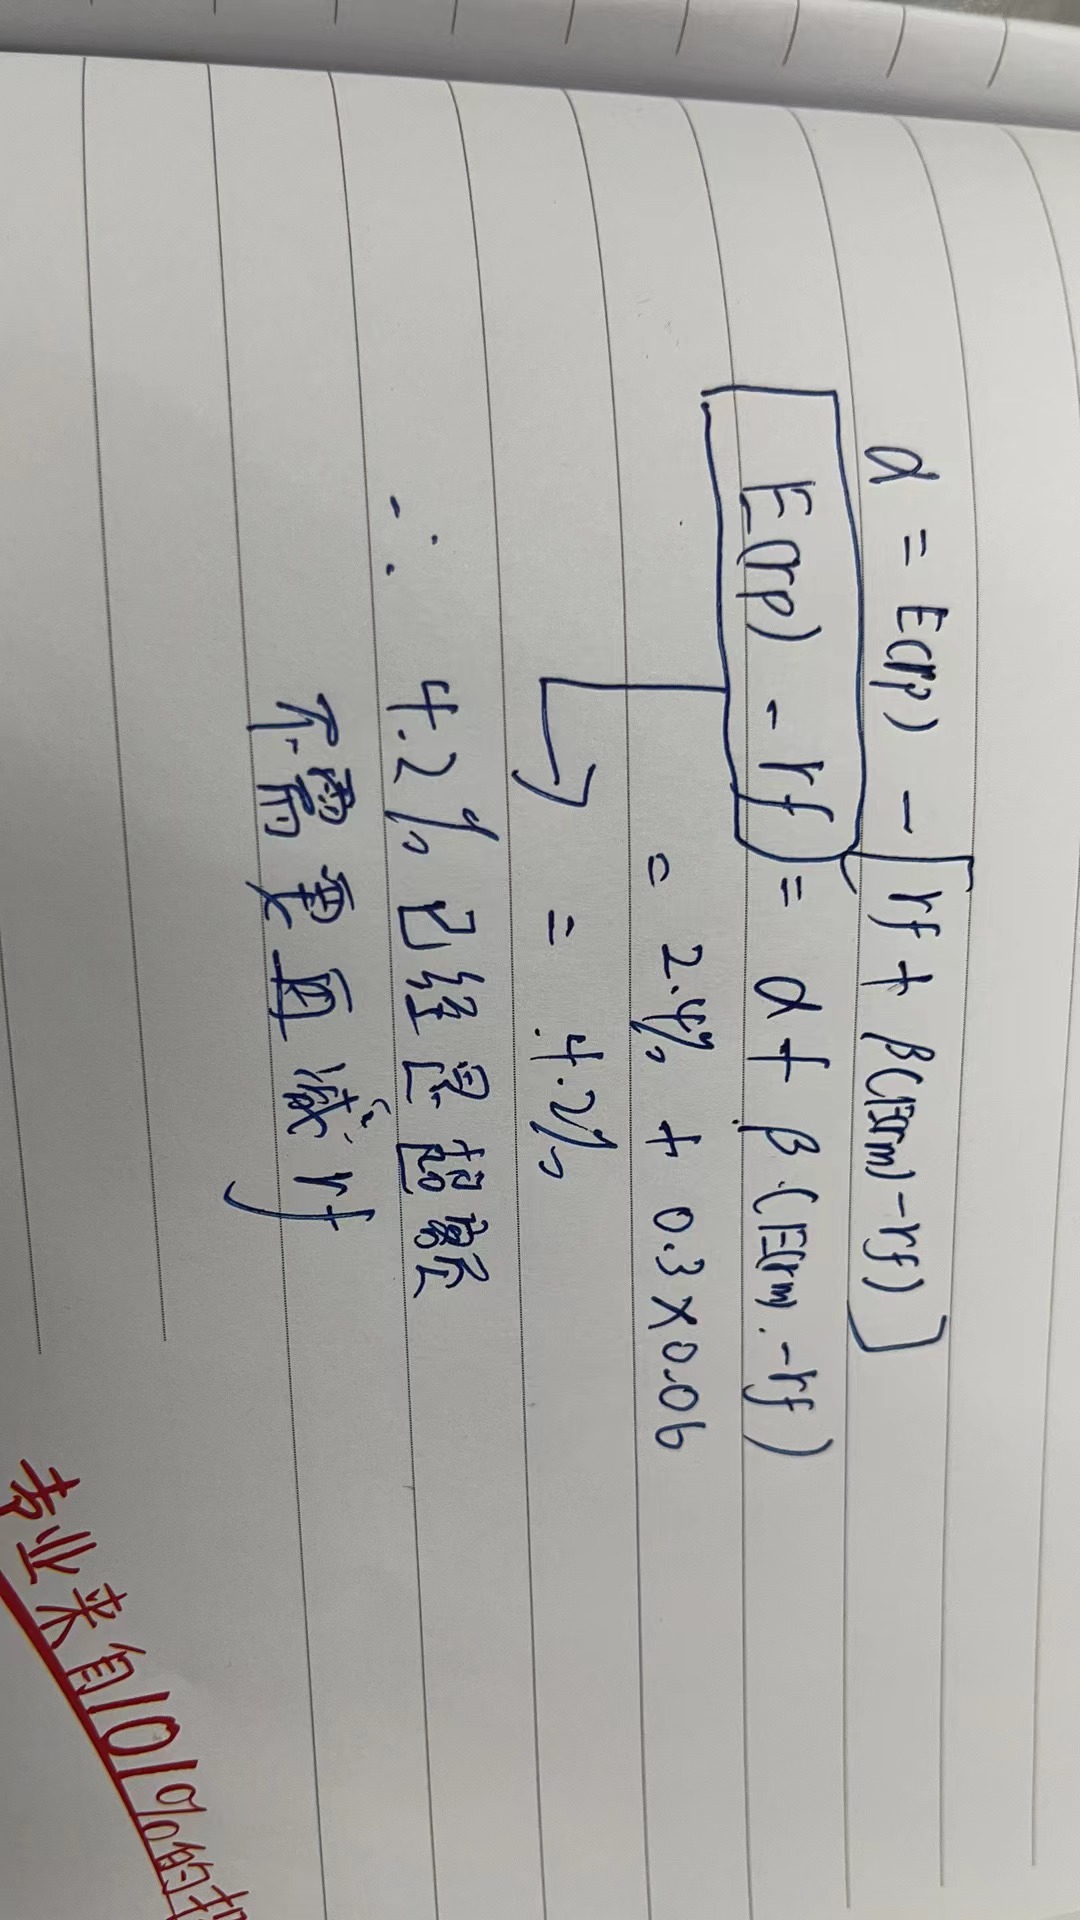 α = E(rp) - [rf + β(E(rm) - rf)]
E(rp) - rf = α + β·(E(rm) - rf)
= 2.4% + 0.3×0.06
= 4.2%
∴ 4.2% 已经是超額
不需要再减 rf
专业来自101%的